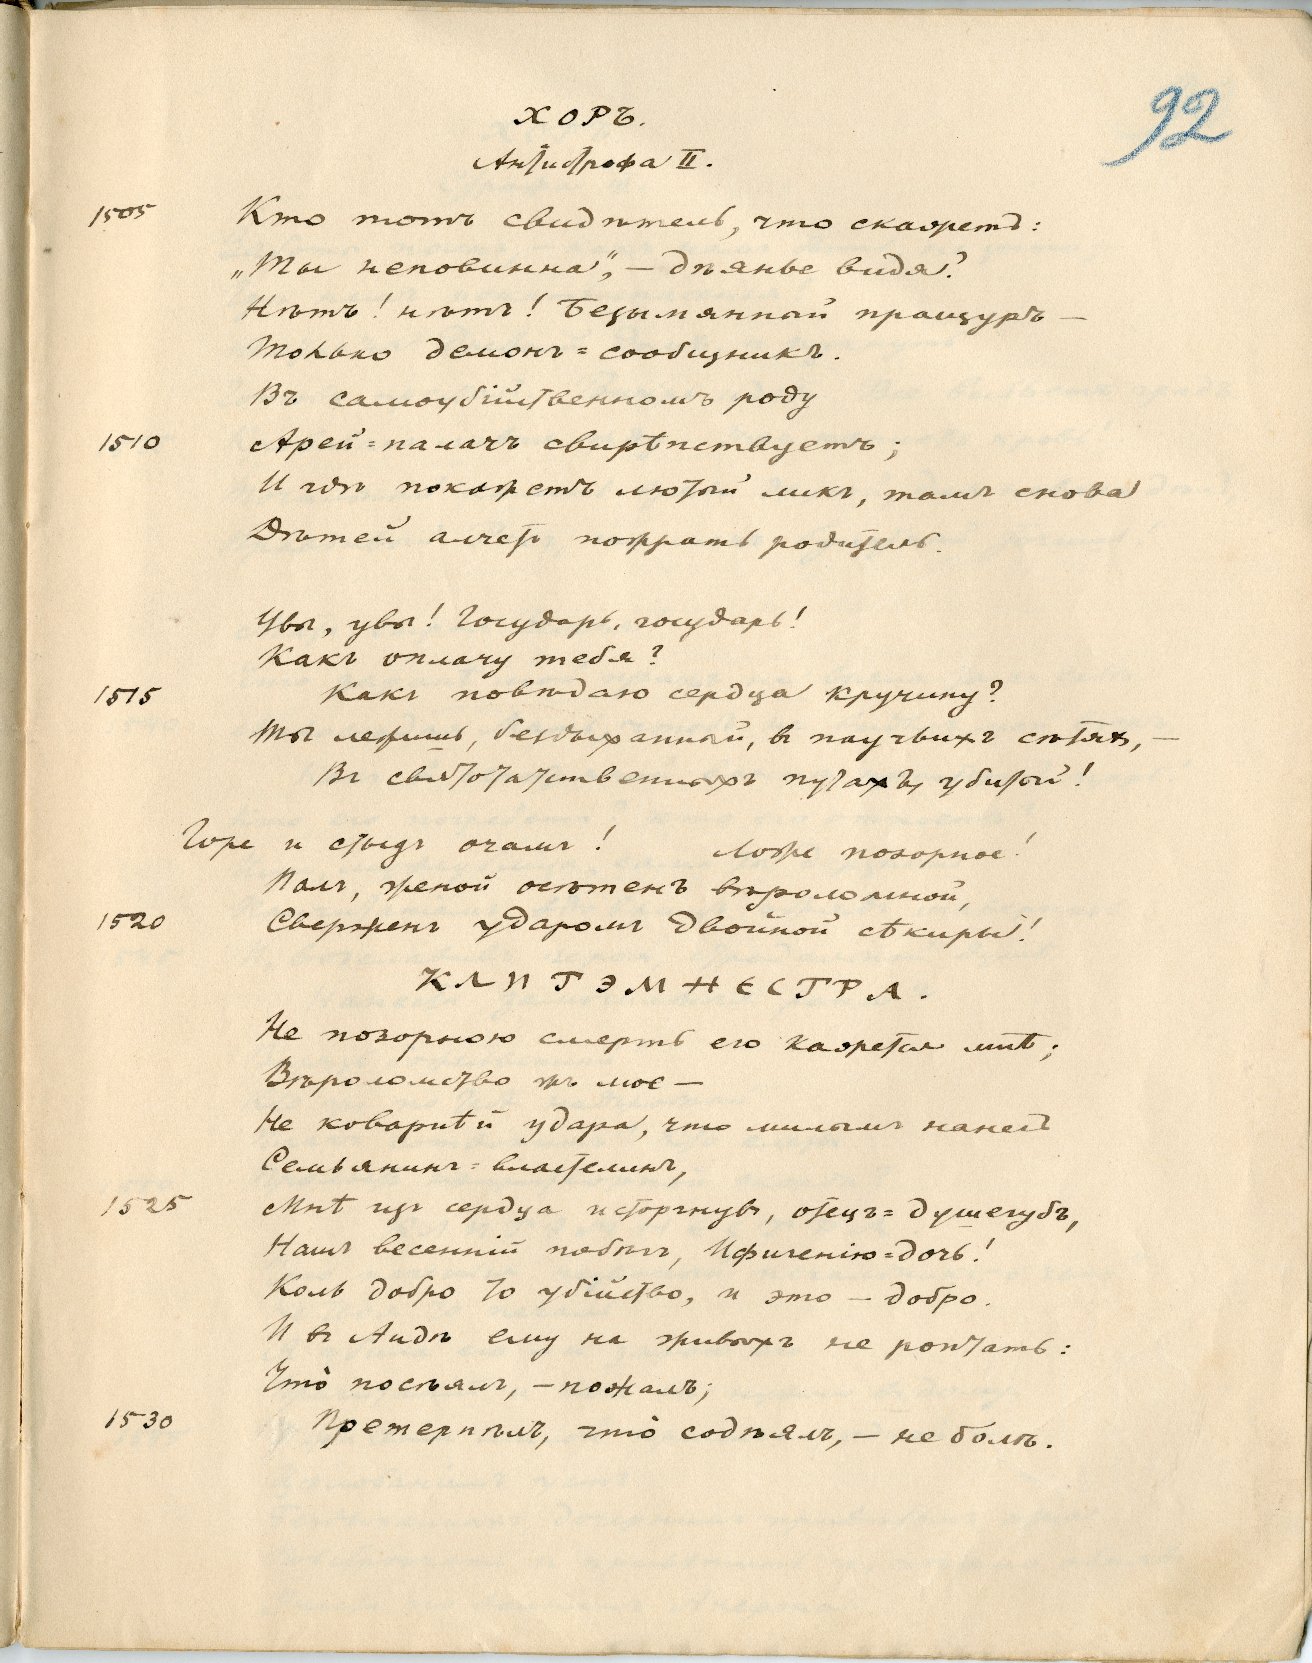 92
ХОРЪ.
Антистрофа II.
1505 Кто тотъ свидѣтель, что скажетъ:
„Ты неповинна“, — дѣянье видя?
Нѣтъ! нѣтъ! Безымянный пращуръ —
Только демонъ=сообщникъ.
Въ самоубійственномъ роду
1510 Арей=палачъ свирѣпствуетъ;
И гдѣ покажетъ лютый ликъ, тамъ снова
Дѣтей алчетъ пожрать родитель.
Увы, увы! Государь, государь!
Какъ оплачу тебя?
1515 Какъ повѣдаю сердца кручину?
Ты лежишь, бездыханный, въ паучьихъ сѣтяхъ, —
Въ святотатственныхъ путахъ, убитый!
Горе и стыдъ очамъ! Ложе позорное!
Палъ, женой осѣтенъ вѣроломной,
1520 Сверженъ ударомъ двойной сѣкиры!
КЛИТЭМНЕСТРА.
Не позорною смерть его кажется мнѣ;
Вѣроломство жъ мое —
Не коварнѣй удара, что милымъ нанесъ
Семьянинъ=властелинъ,
1525 Мнѣ изъ сердца исторгнувъ, отецъ=душегубъ,
Нашъ весенній побѣгъ, Ифигенію=дочь!
Коль добро то убійство, и это — добро.
И въ Аидѣ ему на живыхъ не роптать:
Что̀ посѣялъ, — пожалъ;
1530 Претерпѣлъ, что̀ содѣялъ, — не болѣ.